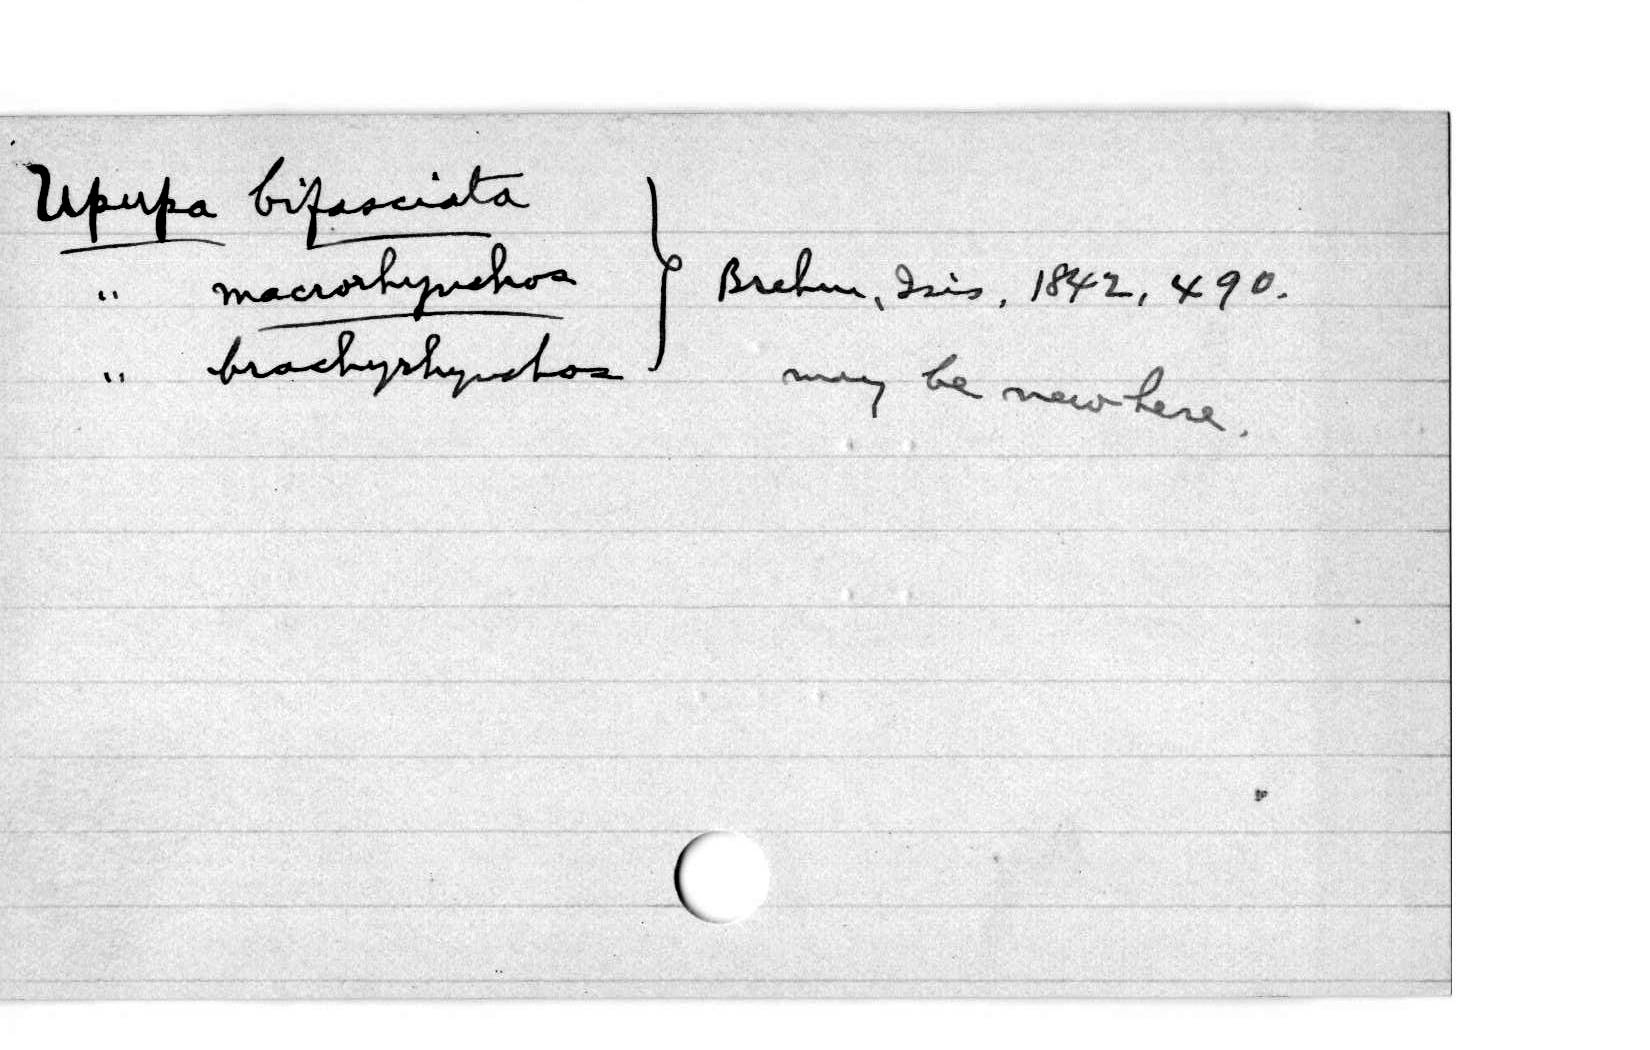 Upupa bifasciata
" macrorhynchos } Brehm, Isis, 1842, 490.
" brachyrhynchos
may be new here.